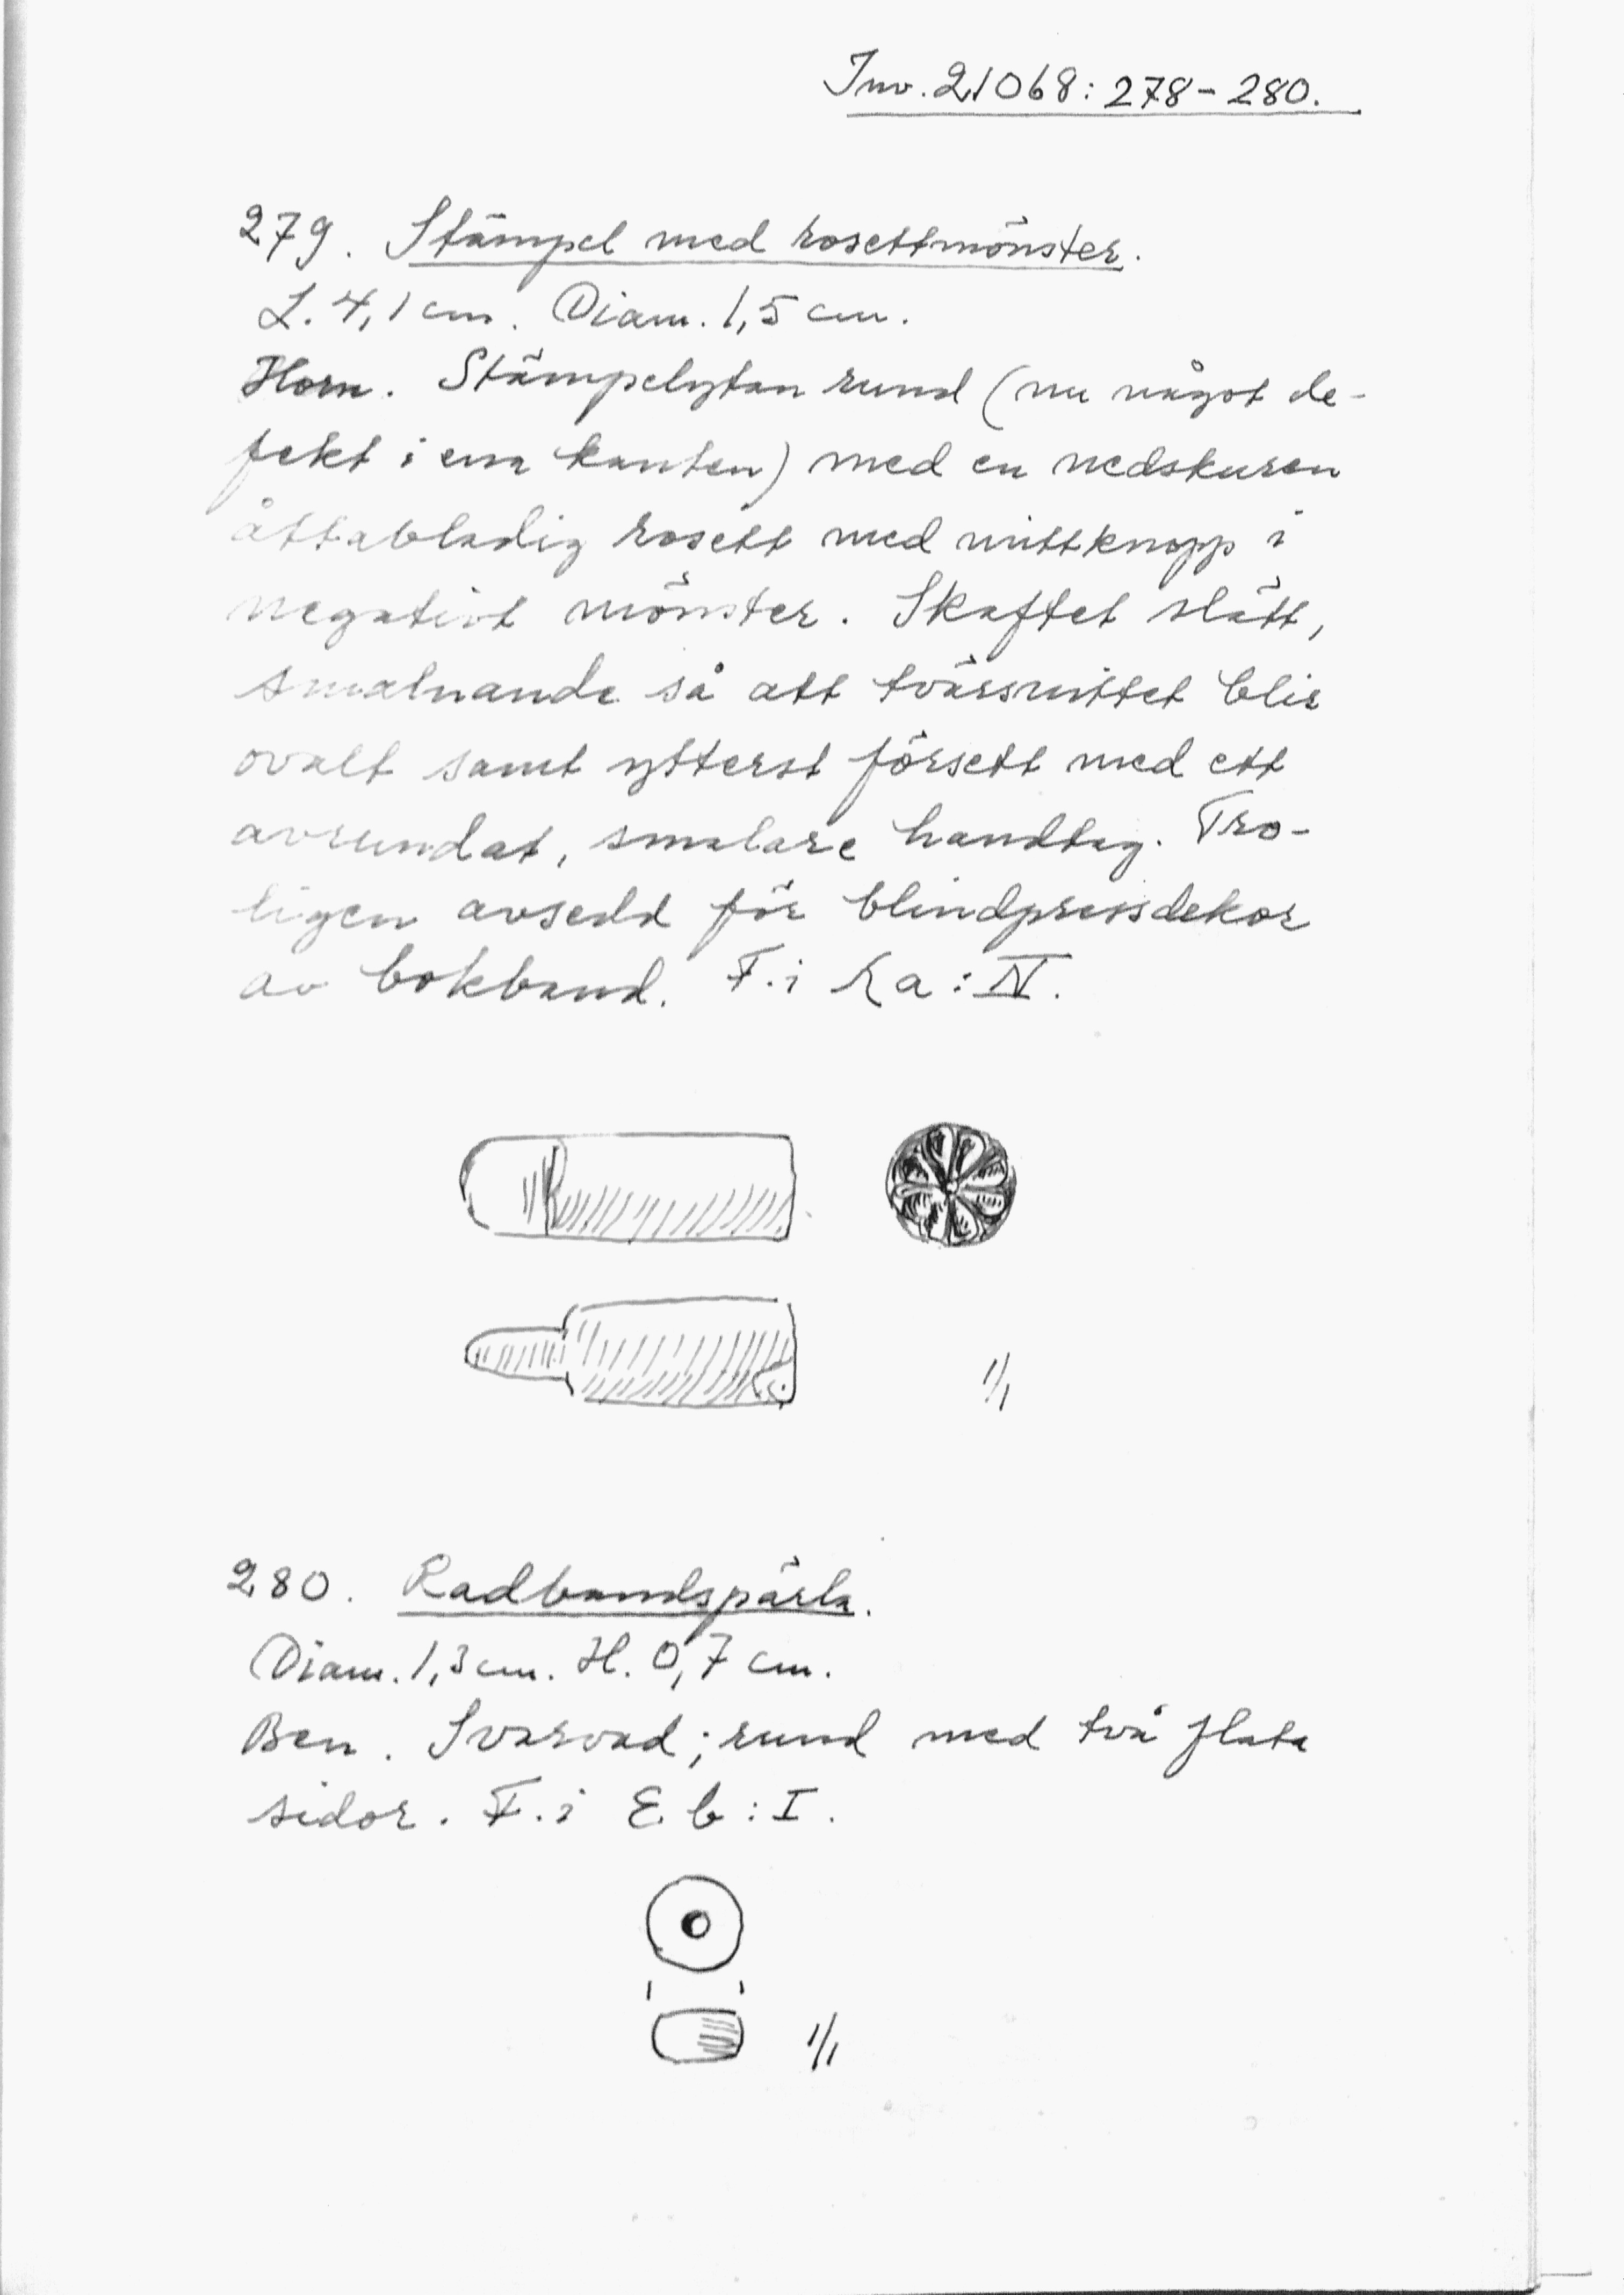 Inv. 21068: 278-280.
279. Stämpel med rosettmönster.
L. 4,1 cm. Diam. 1,5 cm.
Horn. Stämpelytan rund (nu något de-
fekt i ena kanten) med en nedskuren
åttabladig rosett med mittknopp i
negativt mönster. Skaftet slätt,
smalnande så att tvärsnittet blir
ovalt samt ytterst försett med ett
avrundat, smalare handtag. Tro-
ligen avsedd för blindpressdekor
av bokband. F. i a: IV.
1/1
280. Radbandspärla.
Diam. 1,3 cm. H. 0,7 cm.
Ben. Svarvad; rund med två flata
sidor. F. i E. b: I.
1/1